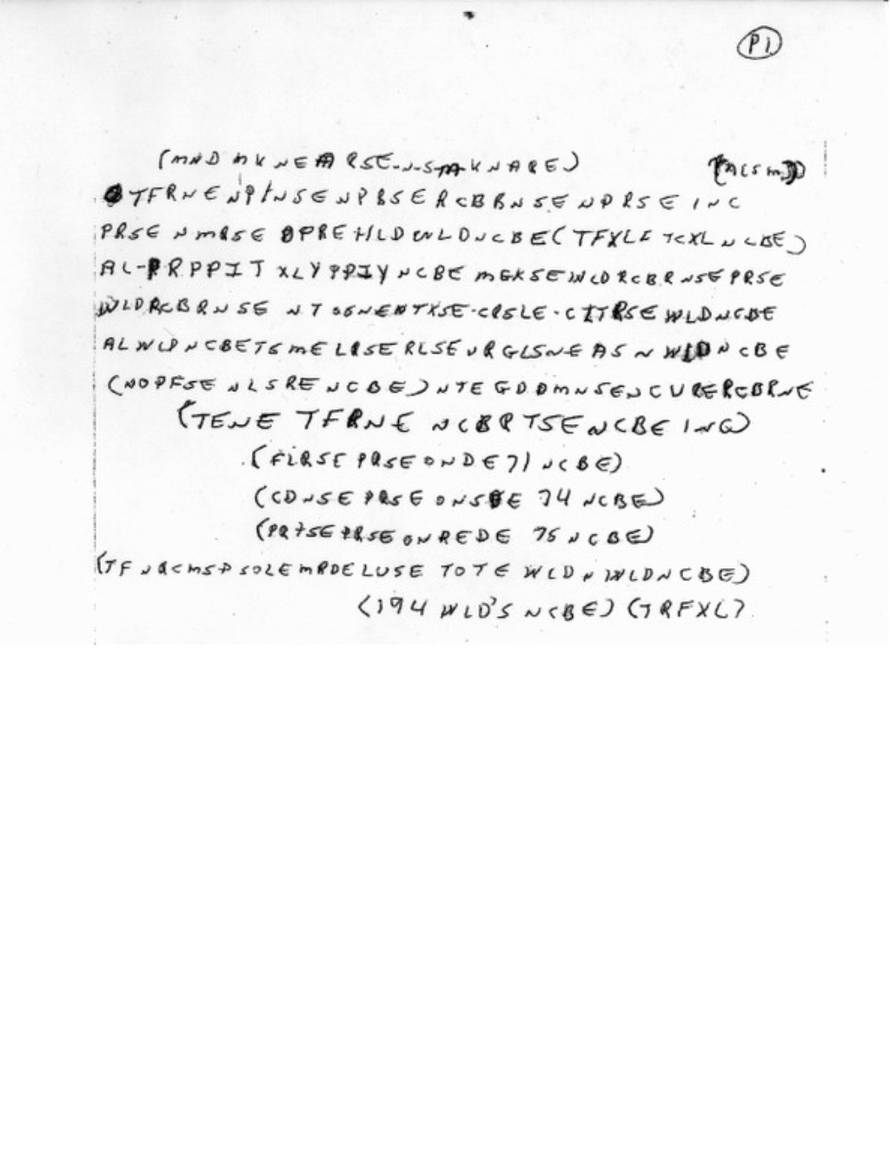 P1
(MND MKNEARSE-N-S-M-KNARE) (ACSM)
TFRNENPINSENPBSERCBBRNSENPRSEINC
PRSENMRSEOPREHLDWLDNCBE(TFXLFTCXLNCBE)
AL-PRPPITXLYPPIYNCBEMGKSEWLDRCBRNSEPRSE
WLDRCBRNSENTSGNENTXSE-CRSLE-CITRSEWLDNCBE
ALWLPNCBETSMELRSERLSEURGLSNEASNWLDNCBE
(NOPFSENLSRENCBE)NTEGDDMNSENCURERCBRNE
(TENETFRNENCBRTSENCBEINC)
(FLRSEPRSEONDE71NCBE)
(CDNSEPRSEONSDE74NCBE)
(PRTSEPRSEONREDE75NCBE)
(TFNRCMSPSOLEMRDELUSETOTEWLDNWLDNCBE)
(194WLD'SNCBE)(TRFXL)